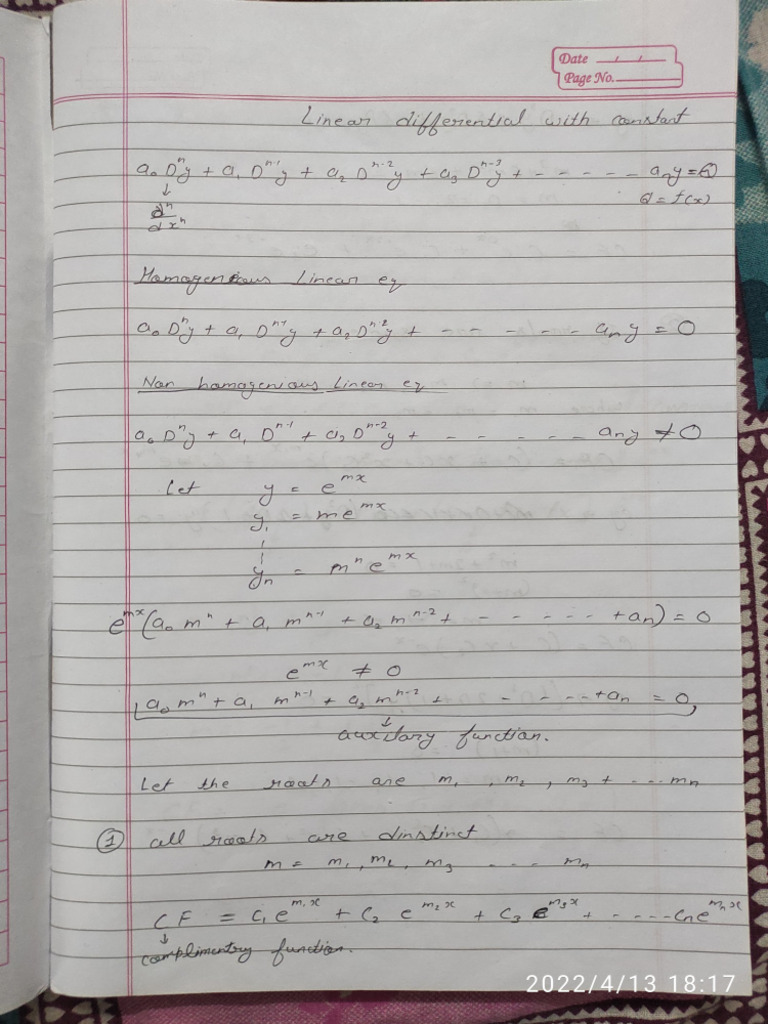 Date / /
Page No.
Linear differential with constant
a₀ Dⁿy + a₁ Dⁿ⁻¹y + a₂ Dⁿ⁻²y + a₃ Dⁿ⁻³y + - - - - - aₙy = Q
↓
dⁿ/dxⁿ
Q = f(x)
Homogenious Linear eq
a₀ Dⁿy + a₁ Dⁿ⁻¹y + a₂ Dⁿ⁻²y + - - - - - aₙy = 0
Non homogenious Linear eq
a₀ Dⁿy + a₁ Dⁿ⁻¹ + a₂ Dⁿ⁻²y + - - - - - aₙy ≠ 0
Let y = e^{mx}
y₁ = me^{mx}
yₙ = mⁿe^{mx}
e^{mx}(a₀ mⁿ + a₁ mⁿ⁻¹ + a₂ mⁿ⁻² + - - - - - + aₙ) = 0
e^{mx} ≠ 0
a₀ mⁿ + a₁ mⁿ⁻¹ + a₂ mⁿ⁻² + - - - - - + aₙ = 0,
↓
auxitary function.
Let the roots are m₁, m₂, m₃ + - - - mₙ
① all roots are dinstinct
m = m₁, m₂, m₃ - - - - mₙ
CF = C₁e^{m₁x} + C₂ e^{m₂x} + C₃ e^{m₃x} + - - - - - Cₙe^{mₙx}
↓
complimentry function.
2022/4/13 18:17